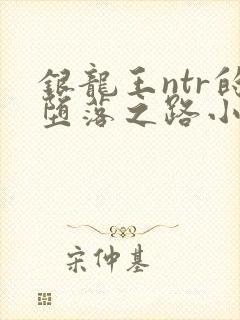 銀龍王ntr的
堕落之路小
宋仲基